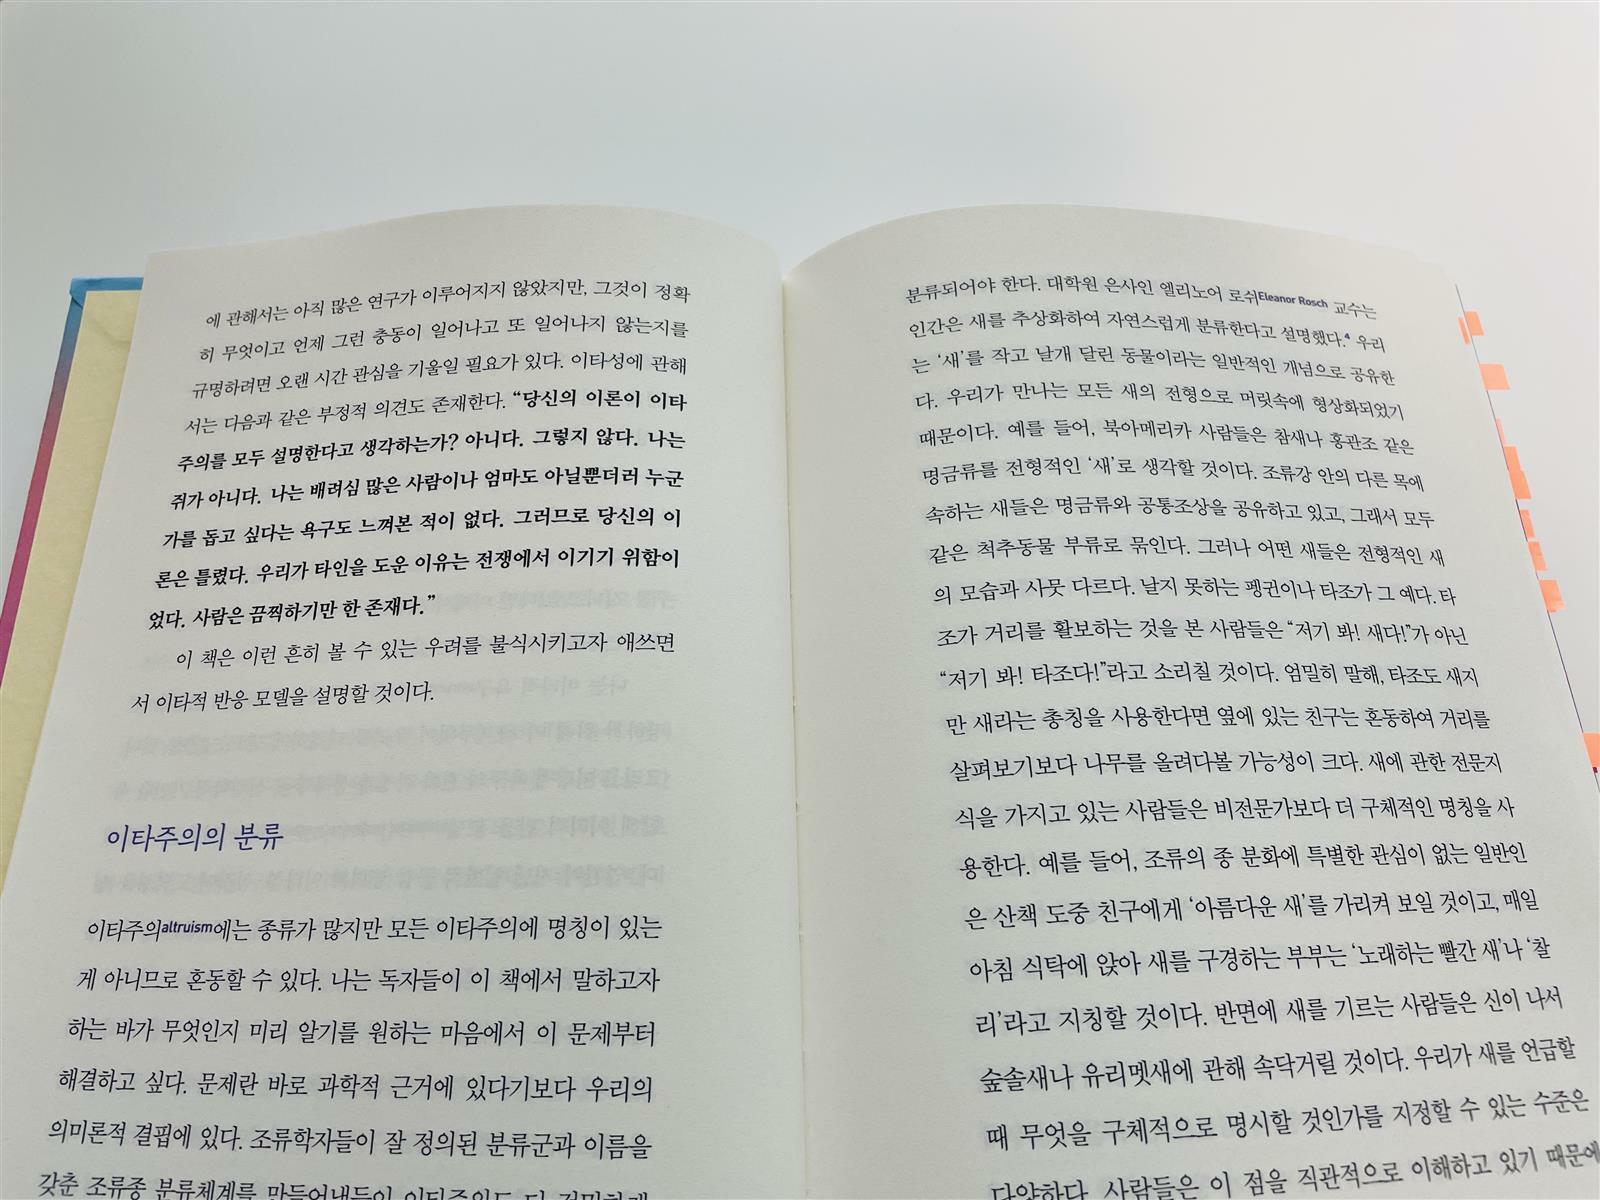 에 관해서는 아직 많은 연구가 이루어지지 않았지만, 그것이 정확
히 무엇이고 언제 그런 충동이 일어나고 또 일어나지 않는지를
규명하려면 오랜 시간 관심을 기울일 필요가 있다. 이타성에 관해
서는 다음과 같은 부정적 의견도 존재한다. “당신의 이론이 이타
주의를 모두 설명한다고 생각하는가? 아니다. 그렇지 않다. 나는
쥐가 아니다. 나는 배려심 많은 사람이나 엄마도 아닐뿐더러 누군
가를 돕고 싶다는 욕구도 느껴본 적이 없다. 그러므로 당신의 이
론은 틀렸다. 우리가 타인을 도운 이유는 전쟁에서 이기기 위함이
었다. 사람은 끔찍하기만 한 존재다.”
이 책은 이런 흔히 볼 수 있는 우려를 불식시키고자 애쓰면
서 이타적 반응 모델을 설명할 것이다.
이타주의의 분류
이타주의altruism에는 종류가 많지만 모든 이타주의에 명칭이 있는
게 아니므로 혼동할 수 있다. 나는 독자들이 이 책에서 말하고자
하는 바가 무엇인지 미리 알기를 원하는 마음에서 이 문제부터
해결하고 싶다. 문제란 바로 과학적 근거에 있다기보다 우리의
의미론적 결핍에 있다. 조류학자들이 잘 정의된 분류군과 이름을
갖춘 조류종 분류체계를 만들어냈듯이 이타주의도 더
분류되어야 한다. 대학원 은사인 엘리노어 로쉬Eleanor Rosch 교수는
인간은 새를 추상화하여 자연스럽게 분류한다고 설명했다.4 우리
는 ‘새’를 작고 날개 달린 동물이라는 일반적인 개념으로 공유한
다. 우리가 만나는 모든 새의 전형으로 머릿속에 형상화되었기
때문이다. 예를 들어, 북아메리카 사람들은 참새나 홍관조 같은
명금류를 전형적인 ‘새’로 생각할 것이다. 조류강 안의 다른 목에
속하는 새들은 명금류와 공통조상을 공유하고 있고, 그래서 모두
같은 척추동물 부류로 묶인다. 그러나 어떤 새들은 전형적인 새
의 모습과 사뭇 다르다. 날지 못하는 펭귄이나 타조가 그 예다. 타
조가 거리를 활보하는 것을 본 사람들은 “저기 봐! 새다!”가 아닌
“저기 봐! 타조다!”라고 소리칠 것이다. 엄밀히 말해, 타조도 새지
만 새라는 총칭을 사용한다면 옆에 있는 친구는 혼동하여 거리를
살펴보기보다 나무를 올려다볼 가능성이 크다. 새에 관한 전문지
식을 가지고 있는 사람들은 비전문가보다 더 구체적인 명칭을 사
용한다. 예를 들어, 조류의 종 분화에 특별한 관심이 없는 일반인
은 산책 도중 친구에게 ‘아름다운 새’를 가리켜 보일 것이고, 매일
아침 식탁에 앉아 새를 구경하는 부부는 ‘노래하는 빨간 새’나 ‘찰
리’라고 지칭할 것이다. 반면에 새를 기르는 사람들은 신이 나서
숲솔새나 유리멧새에 관해 속닥거릴 것이다. 우리가 새를 언급할
때 무엇을 구체적으로 명시할 것인가를 지정할 수 있는 수준은
다양하다. 사람들은 이 점을 직관적으로 이해하고 있기 때문에